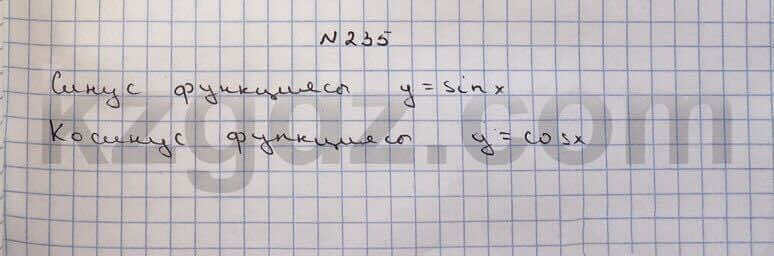 N 235
Синус функциясы y = sin x
Косинус функциясы y = cos x
kzgdz.com